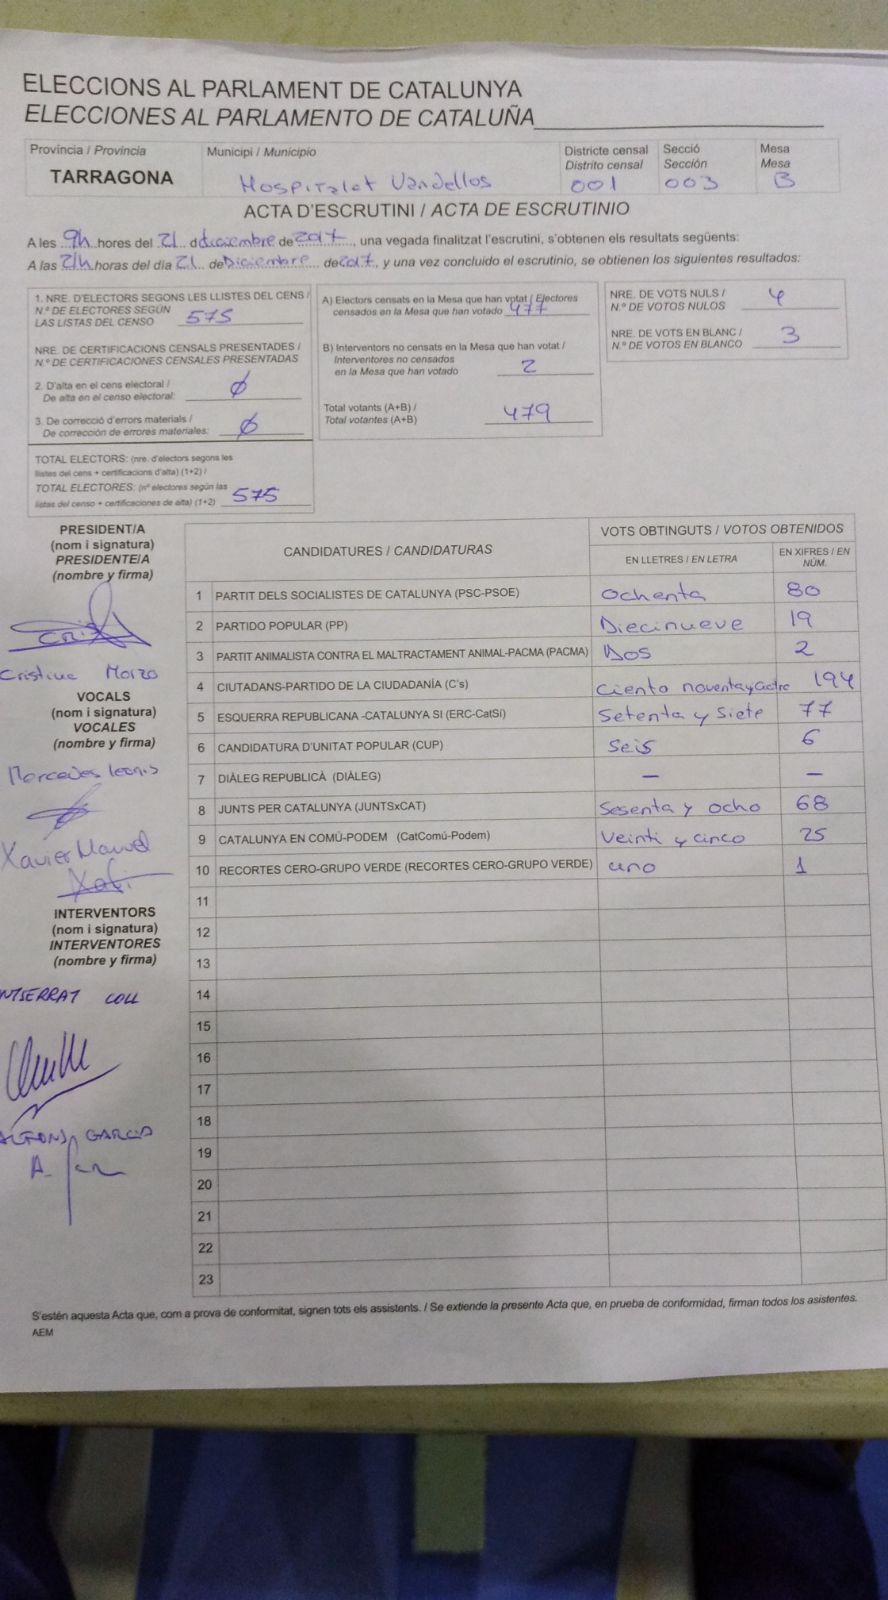 ELECCIONS AL PARLAMENT DE CATALUNYA
ELECCIONES AL PARLAMENTO DE CATALUÑA
Província / Provincia
TARRAGONA
Municipi / Municipio
Hospitalet Vandellos
Districte censal
Distrito censal
001
Secció
Sección
003
Mesa
Mesa
B
ACTA D'ESCRUTINI / ACTA DE ESCRUTINIO
A les 9h hores del 21 d diciembre de 2017, una vegada finalitzat l'escrutini, s'obtenen els resultats següents:
A las 21h horas del día 21 de Diciembre de 2017, y una vez concluido el escrutinio, se obtienen los siguientes resultados:
1. NRE. D'ELECTORS SEGONS LES LLISTES DEL CENS /
N.º DE ELECTORES SEGÚN
LAS LISTAS DEL CENSO 575
NRE. DE CERTIFICACIONS CENSALS PRESENTADES /
N.º DE CERTIFICACIONES CENSALES PRESENTADAS
2. D'alta en el cens electoral /
De alta en el censo electoral: ø
3. De correcció d'errors materials /
De corrección de errores materiales: ø
TOTAL ELECTORS: (nre. d'electors segons les
llistes del cens + certificacions d'alta) (1+2) /
TOTAL ELECTORES: (nº electores según las
listas del censo + certificaciones de alta) (1+2) 575
A) Electors censats en la Mesa que han votat / Electores
censados en la Mesa que han votado 477
B) Interventors no censats en la Mesa que han votat /
Interventores no censados
en la Mesa que han votado 2
Total votants (A+B) /
Total votantes (A+B) 479
NRE. DE VOTS NULS /
N.º DE VOTOS NULOS 4
NRE. DE VOTS EN BLANC /
N.º DE VOTOS EN BLANCO 3
PRESIDENT/A
(nom i signatura)
PRESIDENTE/A
(nombre y firma)
Cristina
VOCALS
(nom i signatura)
VOCALES
(nombre y firma)
Mercedes
Xavier Manuel
Xavi
INTERVENTORS
(nom i signatura)
INTERVENTORES
(nombre y firma)
NTSERRAT COLL
ALFONS GARCIA
CANDIDATURES / CANDIDATURAS
VOTS OBTINGUTS / VOTOS OBTENIDOS
EN LLETRES / EN LETRA
EN XIFRES / EN
NÚM.
1 PARTIT DELS SOCIALISTES DE CATALUNYA (PSC-PSOE) ochenta 80
2 PARTIDO POPULAR (PP) Diecinueve 19
3 PARTIT ANIMALISTA CONTRA EL MALTRACTAMENT ANIMAL-PACMA (PACMA) Dos 2
4 CIUTADANS-PARTIDO DE LA CIUDADANÍA (C's) Ciento noventa y cuatro 194
5 ESQUERRA REPUBLICANA -CATALUNYA SI (ERC-CatSí) Setenta y Siete 77
6 CANDIDATURA D'UNITAT POPULAR (CUP) Seis 6
7 DIÀLEG REPUBLICÀ (DIÀLEG) — —
8 JUNTS PER CATALUNYA (JUNTSxCAT) Sesenta y ocho 68
9 CATALUNYA EN COMÚ-PODEM (CatComú-Podem) Veinti y cinco 25
10 RECORTES CERO-GRUPO VERDE (RECORTES CERO-GRUPO VERDE) uno 1
11
12
13
14
15
16
17
18
19
20
21
22
23
S'estén aquesta Acta que, com a prova de conformitat, signen tots els assistents. / Se extiende la presente Acta que, en prueba de conformidad, firman todos los asistentes.
AEM